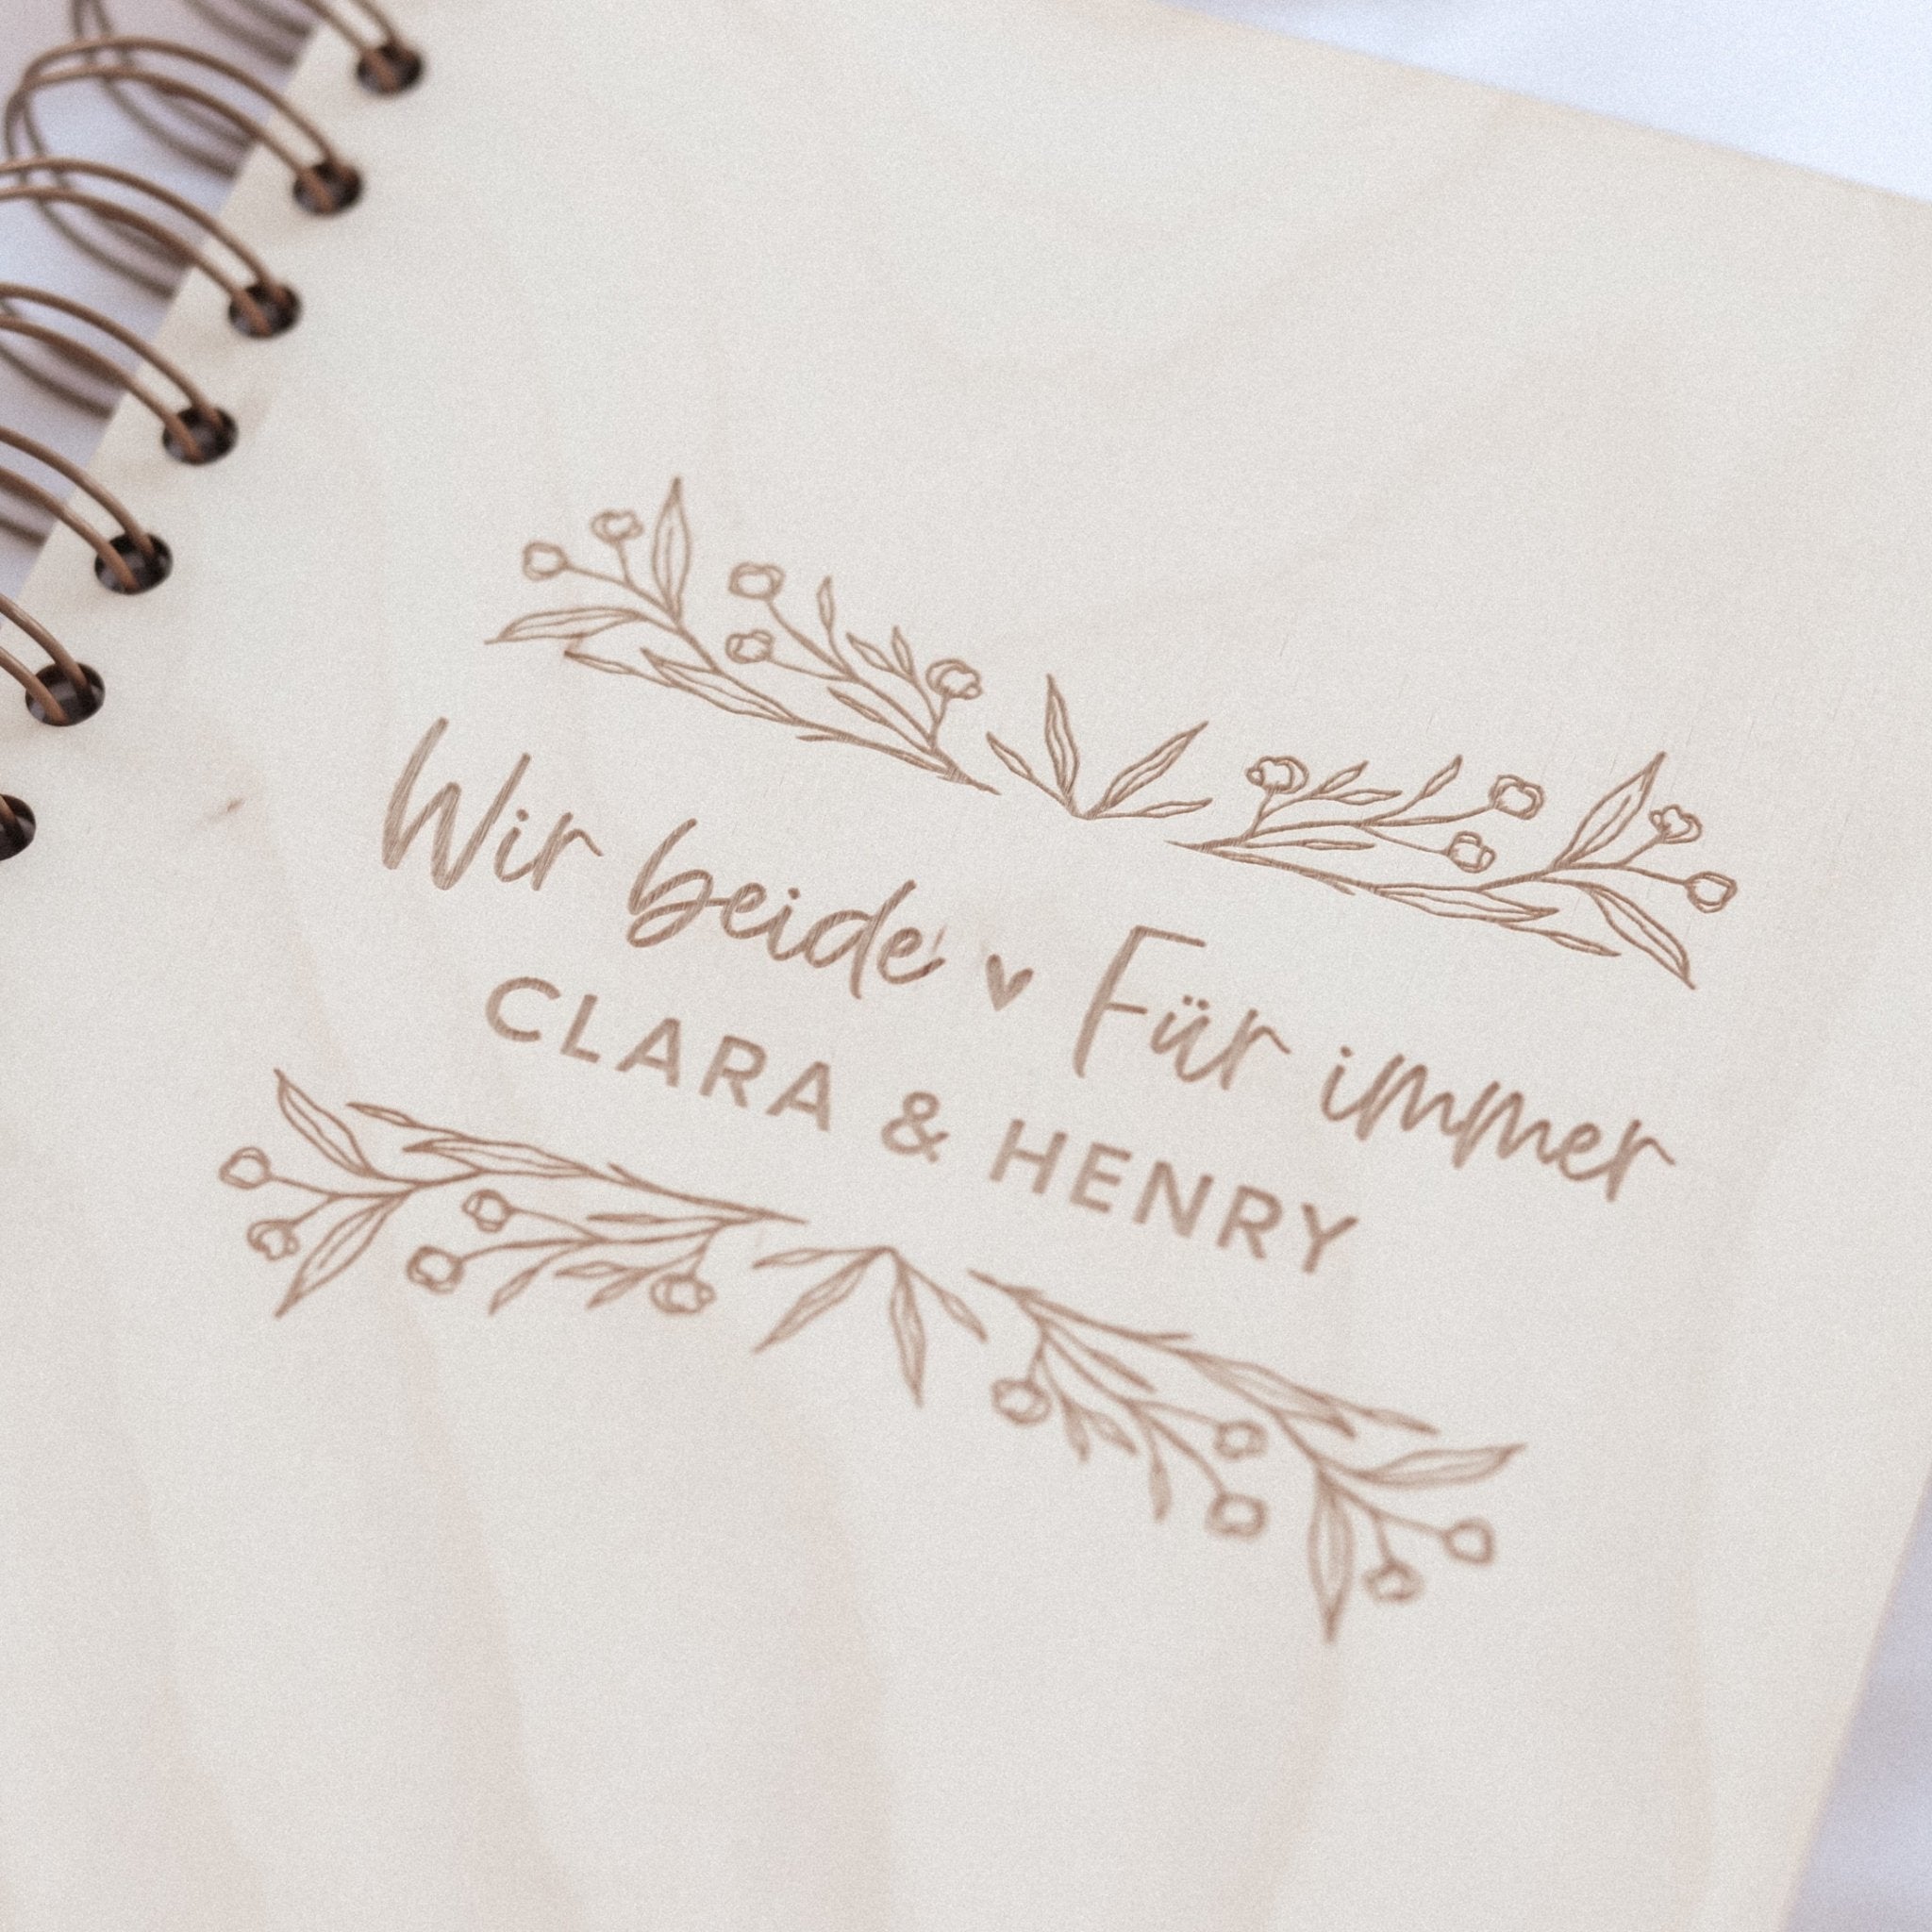 Wir beide ♥ Für immer
CLARA & HENRY